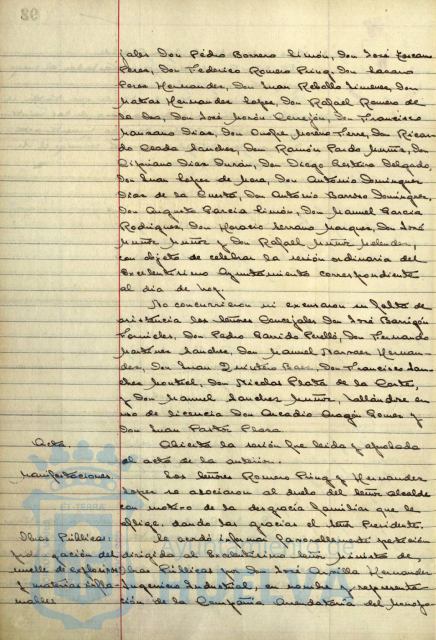 jales Don Pedro Borrero Limón, Don José Toscano
Peres, Don Federico Romero Ping, Don Lázaro
Peres Hernandez, Don Juan Rebollo Jimenez, Don
Matías Hernandez Lopez, Don Rafael Romero de
la Osa, Don José Morón Cerrejón, Don Francisco
Manzano Dias, Don Onofre Moreno Don Ricar-
do Ceada Sanchez, Don Ramón Pardo Muñiz, Don
Cipriano Dias Durán, Don Diego Delgado,
Don Juan Lopez de Mora, Don Antonio Dominguez
Dias de la Cuesta, Don Antonio Barroso Dominguez,
Don Augusto Garcia Limón, Don Manuel Garcia
Rodriguez, Don Horacio Serrano Marquez, Don José
Muñoz Muñoz y Don Rafael Muñoz Melendez,
con objeto de celebrar la sesión ordinaria del
Excelentisimo Ayuntamiento correspondiente
al dia de hoy.
No concurrieron ni excusaron su falta de
asistencia los señores Concejales Don José Barrigón
Fornieles, Don Pedro Garrido Perelló, Don Fernando
Martinez Sanchez, Don Manuel Narvaez Hernan-
dez, Don Juan Quintero Baez, Don Francisco San-
chez Montiel, Don Nicolas Plata de la Corte,
y Don Manuel Sanchez Muñoz, hallándose en
uso de licencia Don Arcadio Aragón Gomez y
Don Juan Pastor
Acta. Abierta la sesión fue leida y aprobada
el acta de la anterior.
Manifestaciones. Los señores Romero Ping y Hernandez
Lopez se asociaron al duelo del Señor Alcalde
con motivo de la desgracia familiar que le
aflige, dando las gracias el Señor Presidente.
Obras Públicas: Se acordó informar favorablemente petición
prolongación del dirigida al Excelentísimo Señor Ministro de
muelle de explosivos Obras Públicas por Don José Hernandez
y materias infla- Ingeniero Industrial, en nombre y representa-
mables ción de la Compañia Arrendataria del Monopo-